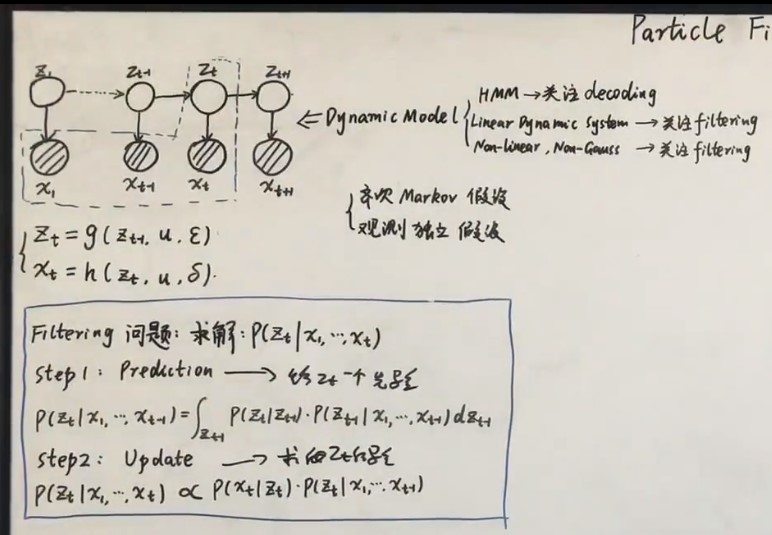 Particle Fi
z₁ z_{t-1} z_t z_{t+1}
x₁ x_{t-1} x_t x_{t+1}
⇐ Dynamic Model
HMM → 关注 decoding
Linear Dynamic System → 关注 filtering
Non-linear, Non-Gauss → 关注 filtering
齐次 Markov 假设
观测独立假设
z_t = g(z_{t-1}, u, ε)
x_t = h(z_t, u, δ).
Filtering 问题: 求解: P(z_t|x₁, ⋯, x_t)
step1: Prediction → 给 z_t 一个先验
P(z_t|x₁, ⋯, x_{t-1}) = ∫_{z_{t-1}} P(z_t|z_{t-1})·P(z_{t-1}|x₁, ⋯, x_{t-1}) dz_{t-1}
step2: Update → 求 z_t
P(z_t|x₁, ⋯, x_t) ∝ P(x_t|z_t)·P(z_t|x₁, ⋯, x_{t-1})